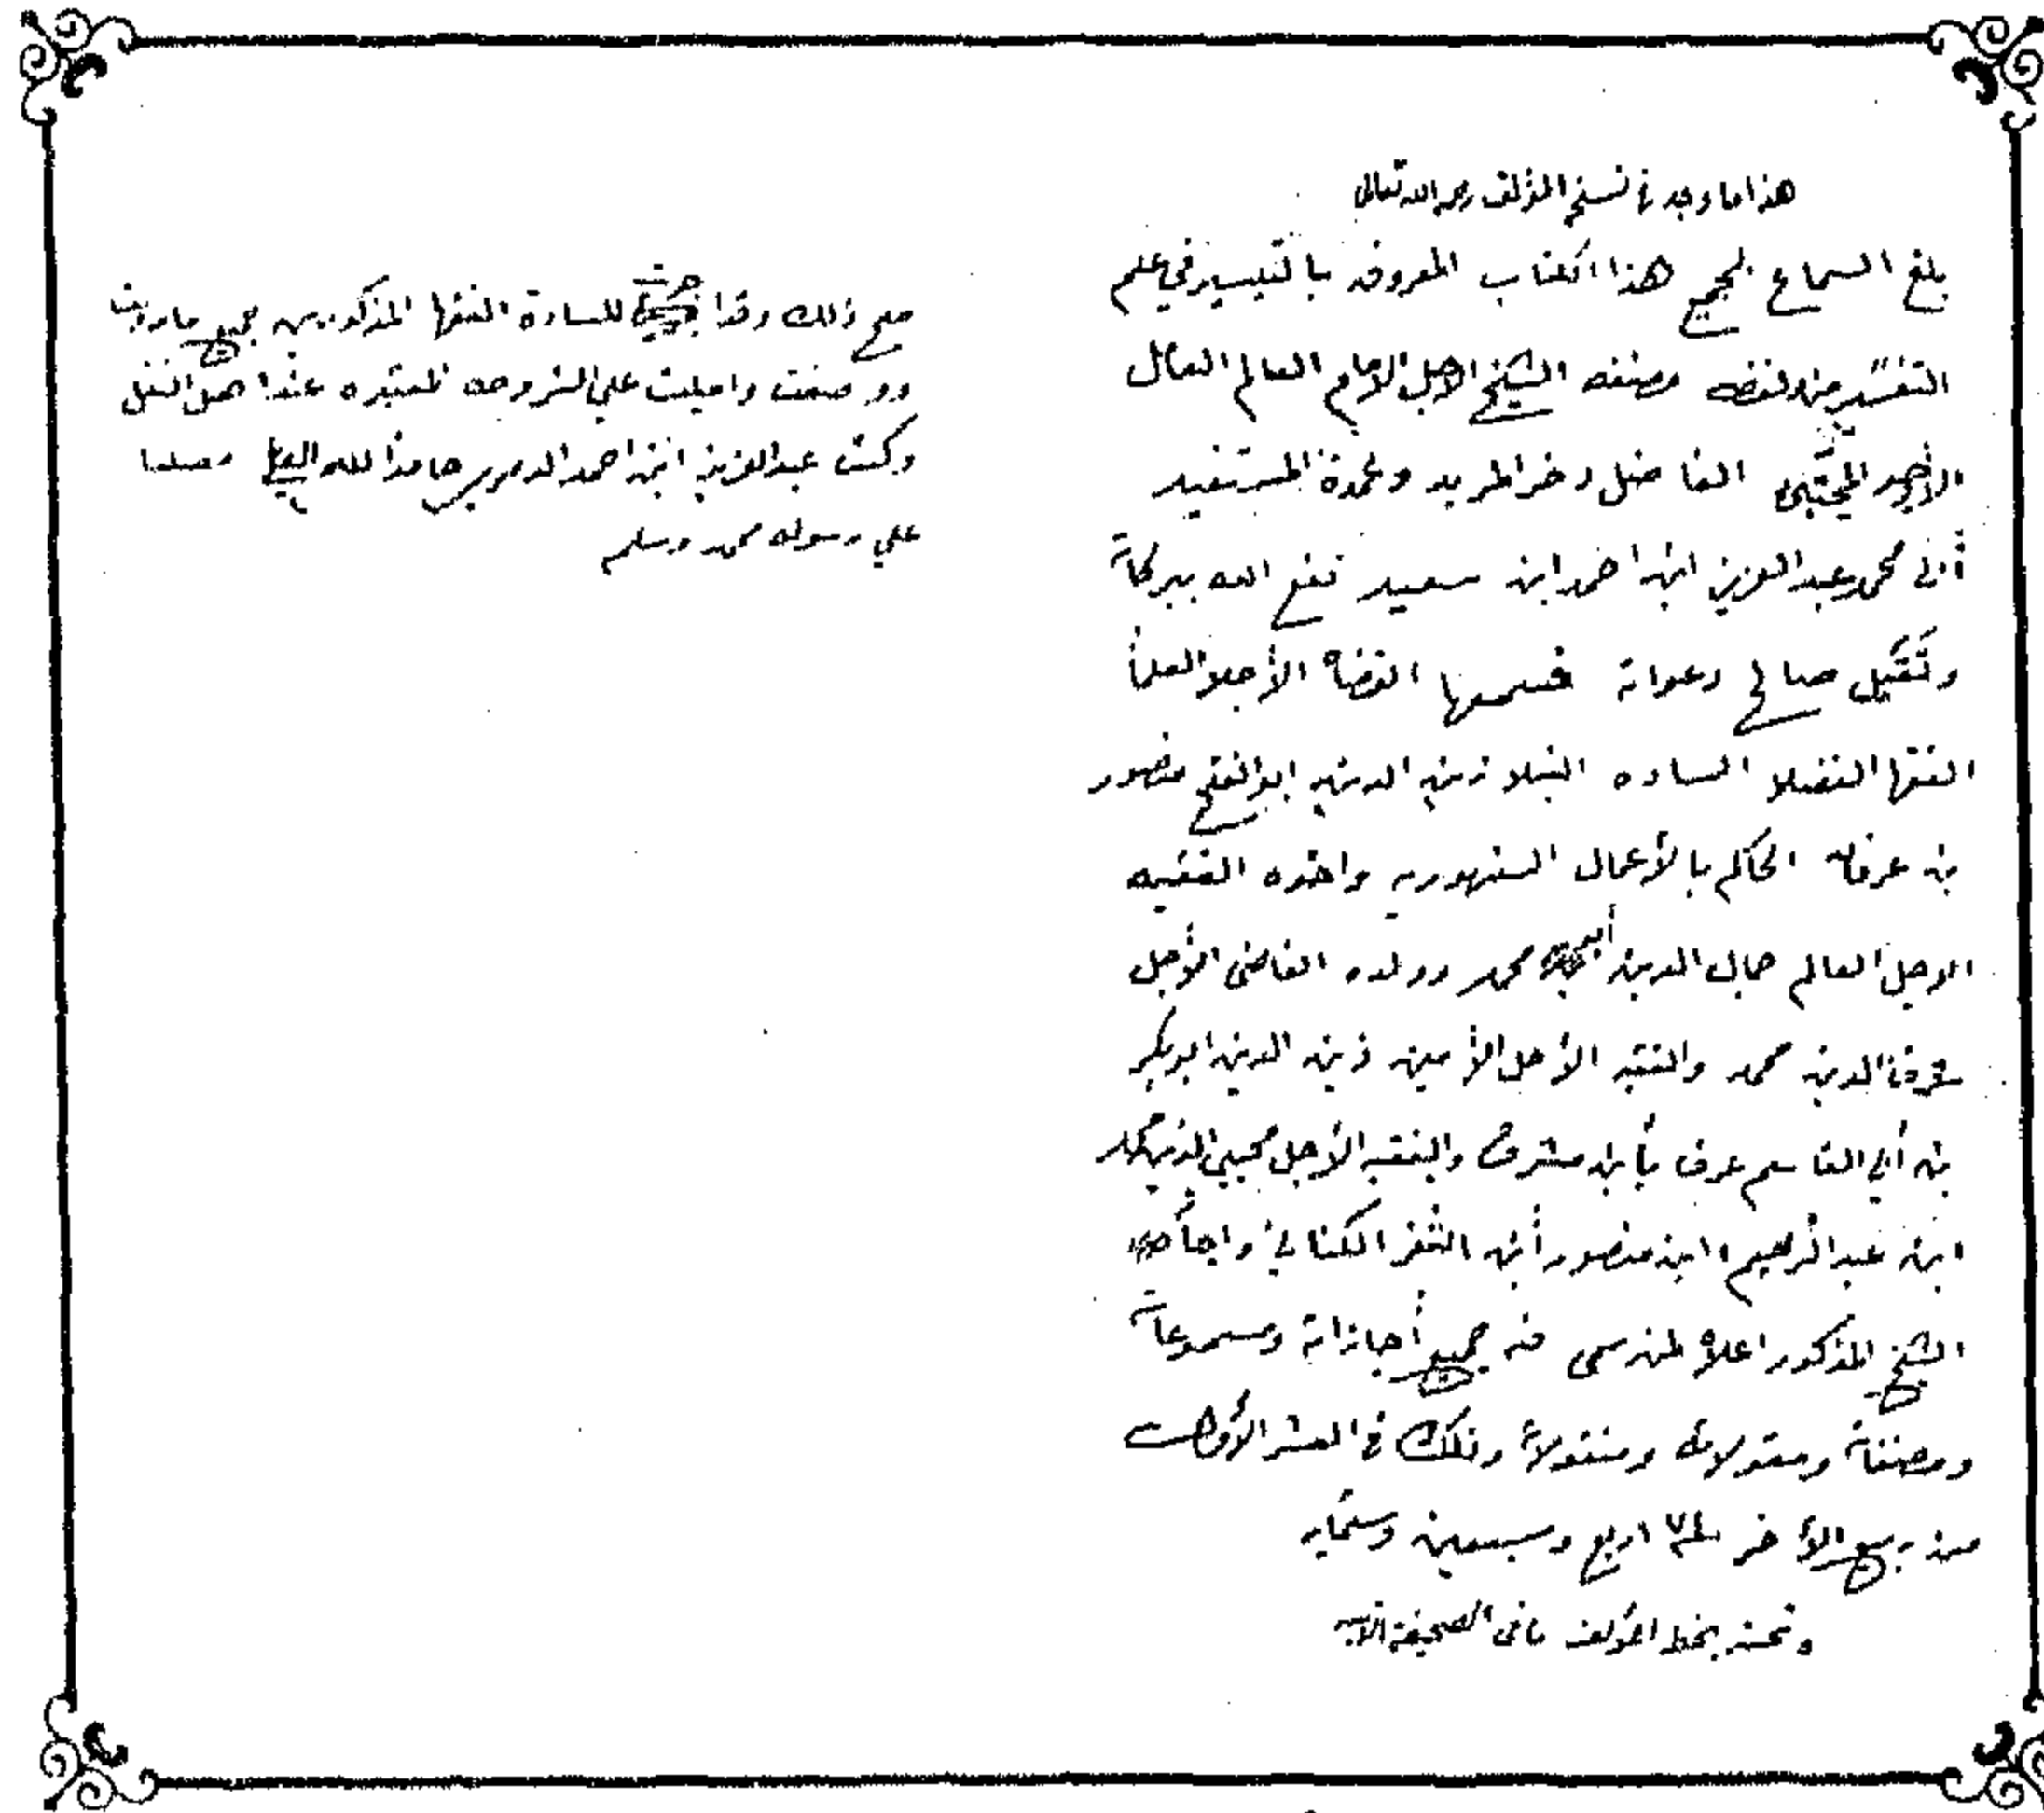 هذا ما وجد في نسخ المؤلف رحمه الله تعالى
بلغ السماع لجميع هذا الكتاب المعروف بالتيسير في علم
التفسير من لفظه مصنفه الشيخ الاجل الإمام العالم العامل
الأوحد المجتبى الفاضل ذخر المريد وعمدة المستفيد
أبى محمد عبد العزيز ابن احمد ابن سعيد نفع الله ببركاته
وتقبل صالح دعواته فسمعها القضاه الأجلا العلمأ
الفقها الفضلا الساده النبلا زين الدين ابو الفتح منصور
بن عرفه الحاكم بالأعمال السنهوريه واخوه الفقيه
الاجل العالم جمال الدين محمد وولده القاضى الأجل
شرف الدين محمد والفقيه الأجل الأمين زين الدين ابو بكر
بن أبي القاسم عرف بأبن مشرف والفقيه الأجل محيي الدين محمد
ابن عبد الرحيم ابن منصور أبن الكناني واجاز
الشيخ المذكور اعلاه لمن سمى منه جميع أجازاته ومسموعاته
ومصنفاته ومقولاته ومنقولاته وذلك في العشر الأوسط
من ربيع الأخر اربع وسبعين وستمايه
وتحته بخط المؤلف ما في الصحيفة الآتيه
صح ذلك وقد اجزت للسادة الفقها المذكورين جميع ما رويت
وو صنفت وامليت علي الشروط المعتبره عند اهل النقل
وكتب عبد العزيز ابن احمد الدميري حامدا لله العلي ومصليا
علي رسوله محمد ومسلم